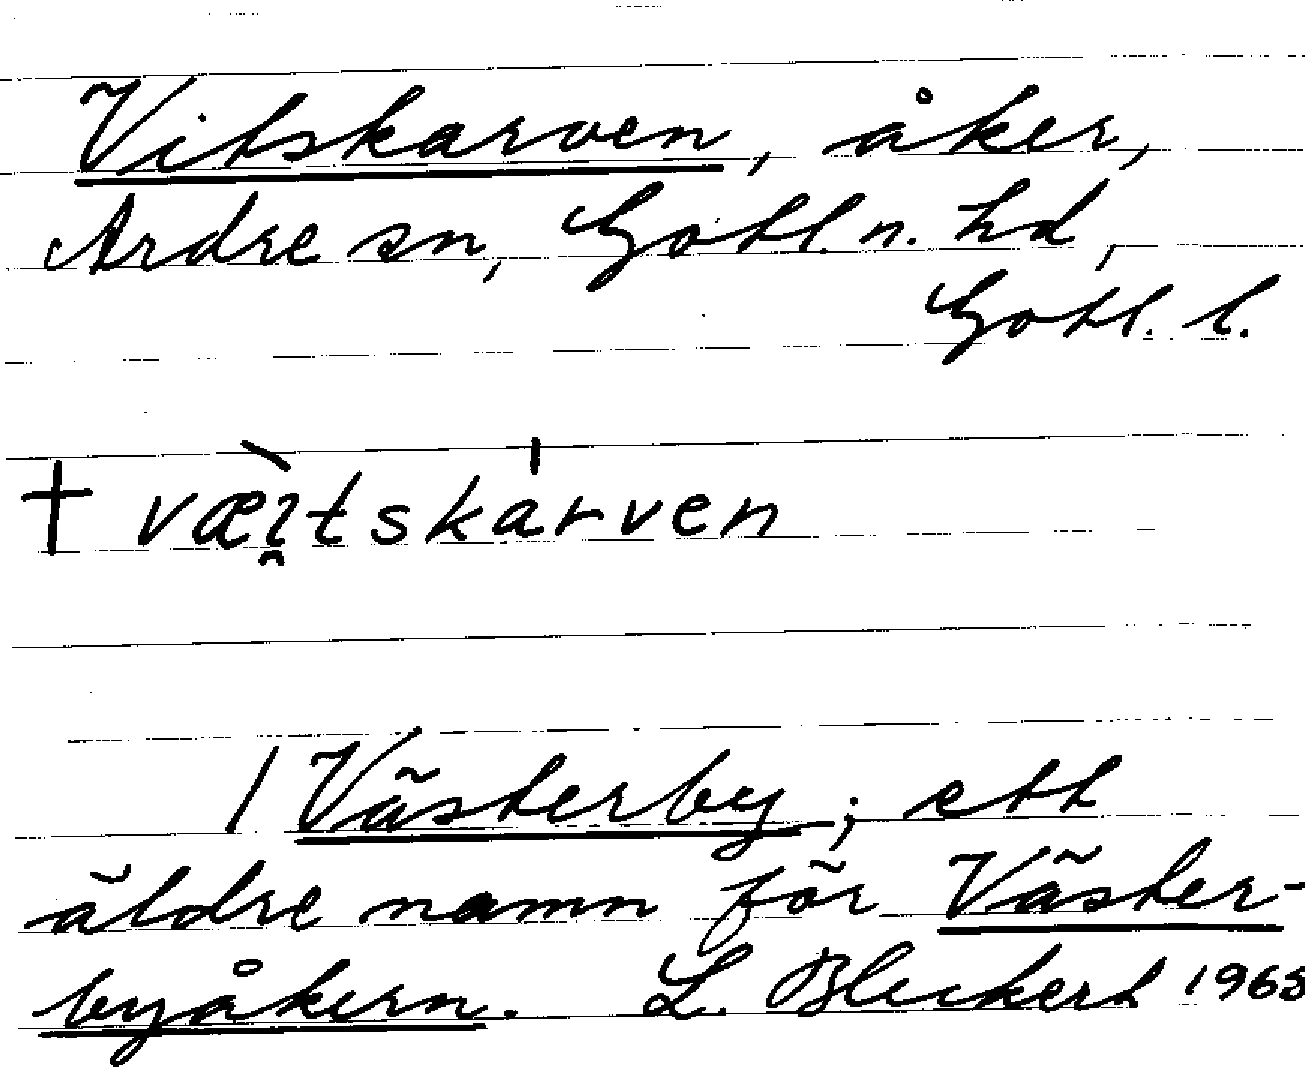 Vitskarven, åker,
Ardre sn, Gotl. n. hd,
Gotl. l.
† væ̀ı̯tskár̍ven
I Västerby; ett
äldre namn för Väster-
byåkern. L. Bleckert 1965